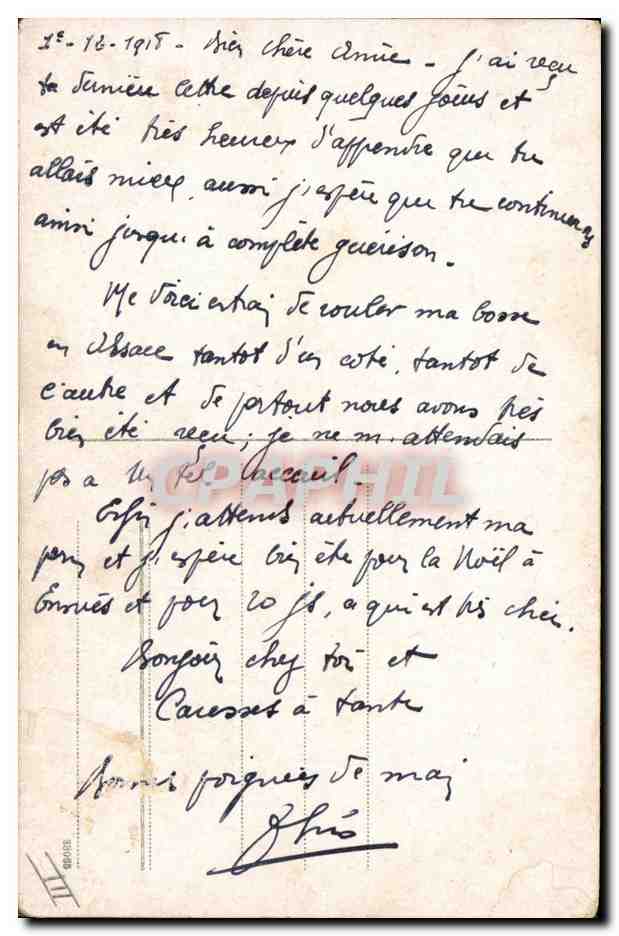 1e - 12 - 1918 - Bien chère Amie - J'ai reçu
ta dernière lettre depuis quelques jours et
ai été très heureux d'apprendre que tu
allais mieux, aussi j'espère que tu continueras
ainsi jusqu'à complète guérison -
Me voici en train de rouler ma bosse
en Alsace tantot d'un coté, tantot de
l'autre et de partout nous avons très
bien été reçu; je ne m'attendais
pas a un tel accueil -
Enfin j'attends actuellement ma
perm et j'espère bien être pour la Noël à
et pour 20 js, ce qui est très chic.
Bonjour chez toi et
Caresses à tante
Bonnes poignées de main
CPAPHIL
33085
III